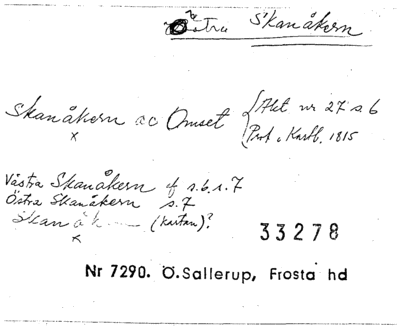 Östra Skanåkern
Skanåkern ac Omset { Akt nr 27 s 6
Prot. o Kartb. 1815
x
Västra Skanåkern af s. 6. s. 7
Östra Skanåkern s. 7
Skanåk (kartan)?
x
33278
Nr 7290. Ö.Sallerup, Frosta hd